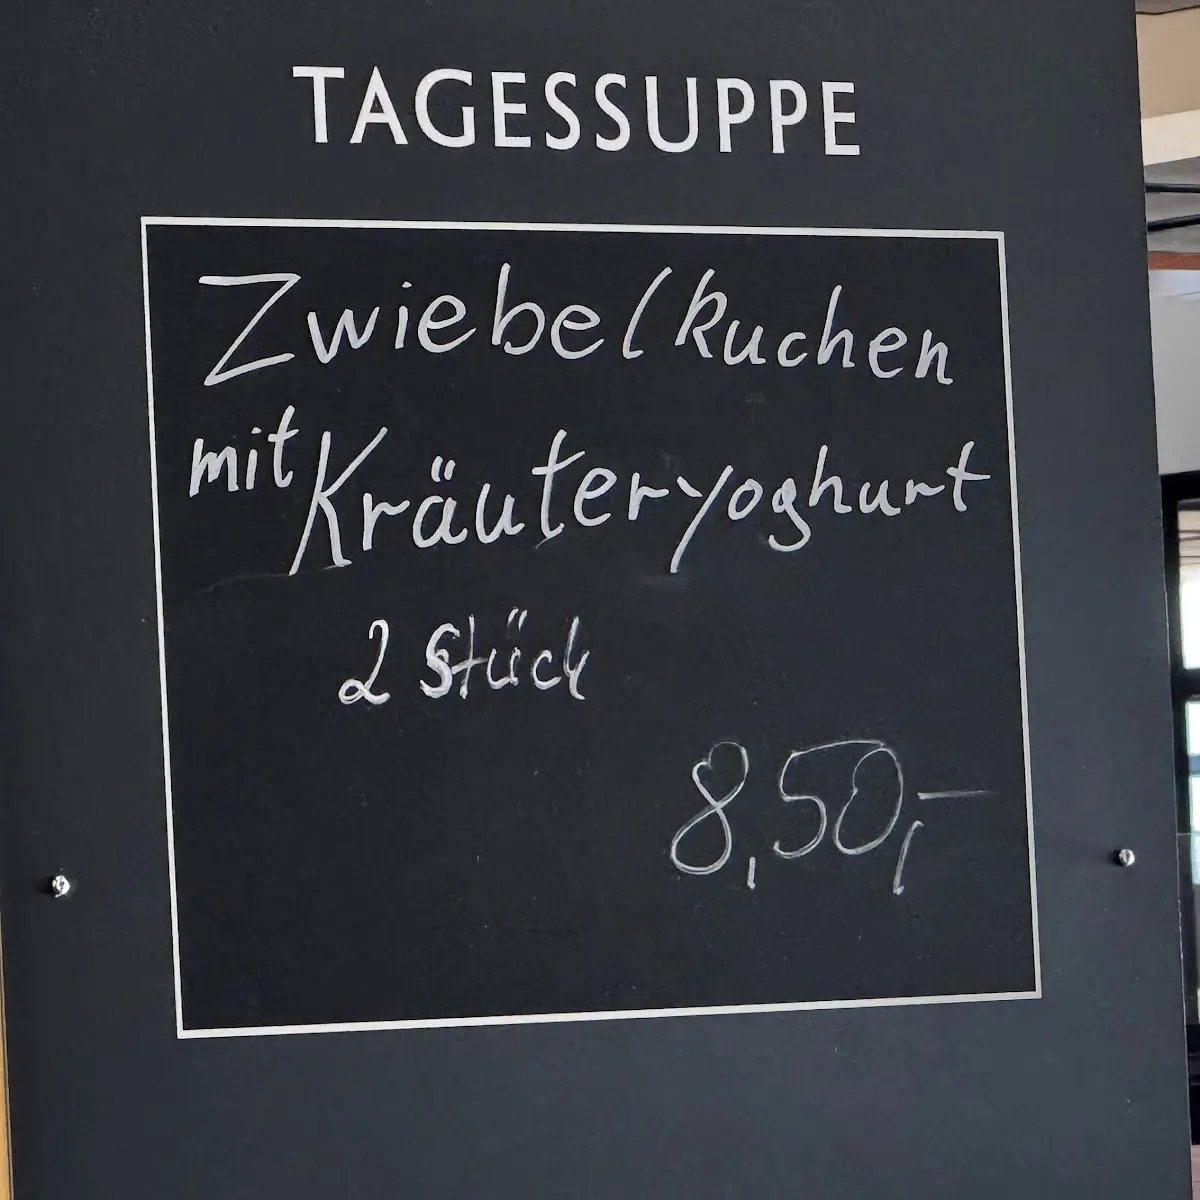 TAGESSUPPE
Zwiebelkuchen
mit Kräuteryoghurt
2 Stück
8,50,-